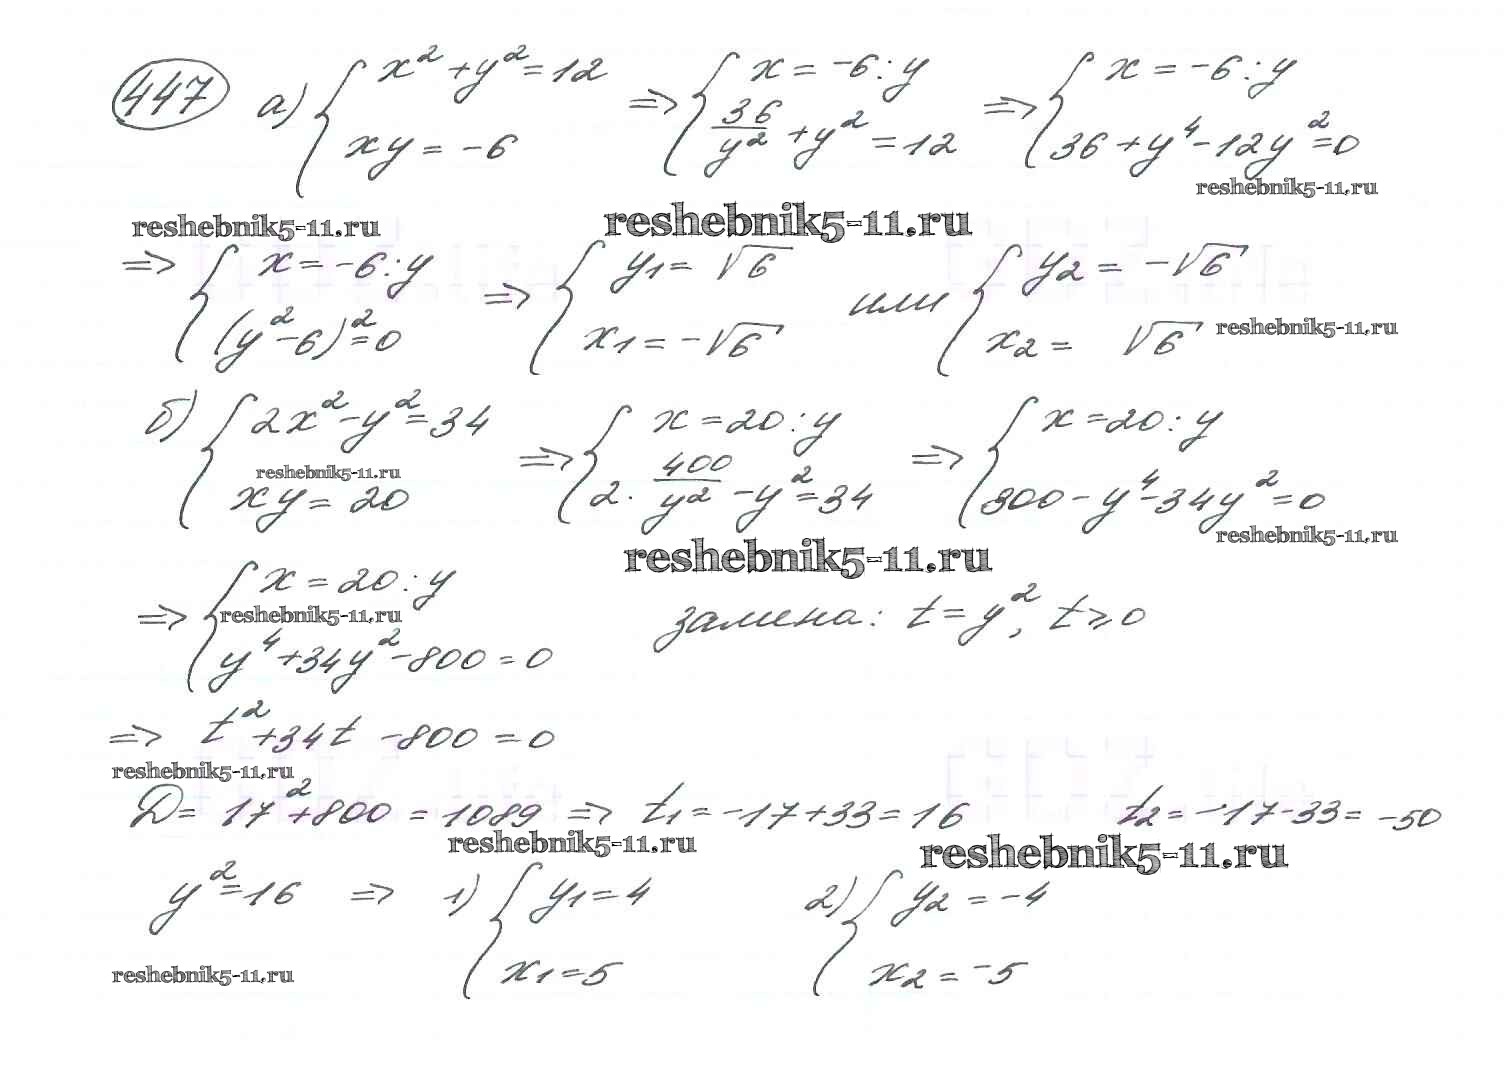 447 а) { x² + y² = 12 ; xy = -6 => { x = -6 : y ; 36/y² + y² = 12 => { x = -6 : y ; 36 + y⁴ - 12y² = 0
reshebnik5-11.ru
reshebnik5-11.ru reshebnik5-11.ru
=> { x = -6 : y ; (y² - 6)² = 0 => { y1 = √6 ; x1 = -√6 или { y2 = -√6 ; x2 = √6
reshebnik5-11.ru
б) { 2x² - y² = 34 ; xy = 20 => { x = 20 : y ; 2 · 400/y² - y² = 34 => { x = 20 : y ; 800 - y⁴ - 34y² = 0
reshebnik5-11.ru
reshebnik5-11.ru
reshebnik5-11.ru
=> { x = 20 : y ; y⁴ + 34y² - 800 = 0 замена: t = y², t ≥ 0
reshebnik5-11.ru
=> t² + 34t - 800 = 0
reshebnik5-11.ru
D = 17² + 800 = 1089 => t1 = -17 + 33 = 16 t2 = -17 - 33 = -50
reshebnik5-11.ru reshebnik5-11.ru
y² = 16 => 1) { y1 = 4 ; x1 = 5 2) { y2 = -4 ; x2 = -5
reshebnik5-11.ru